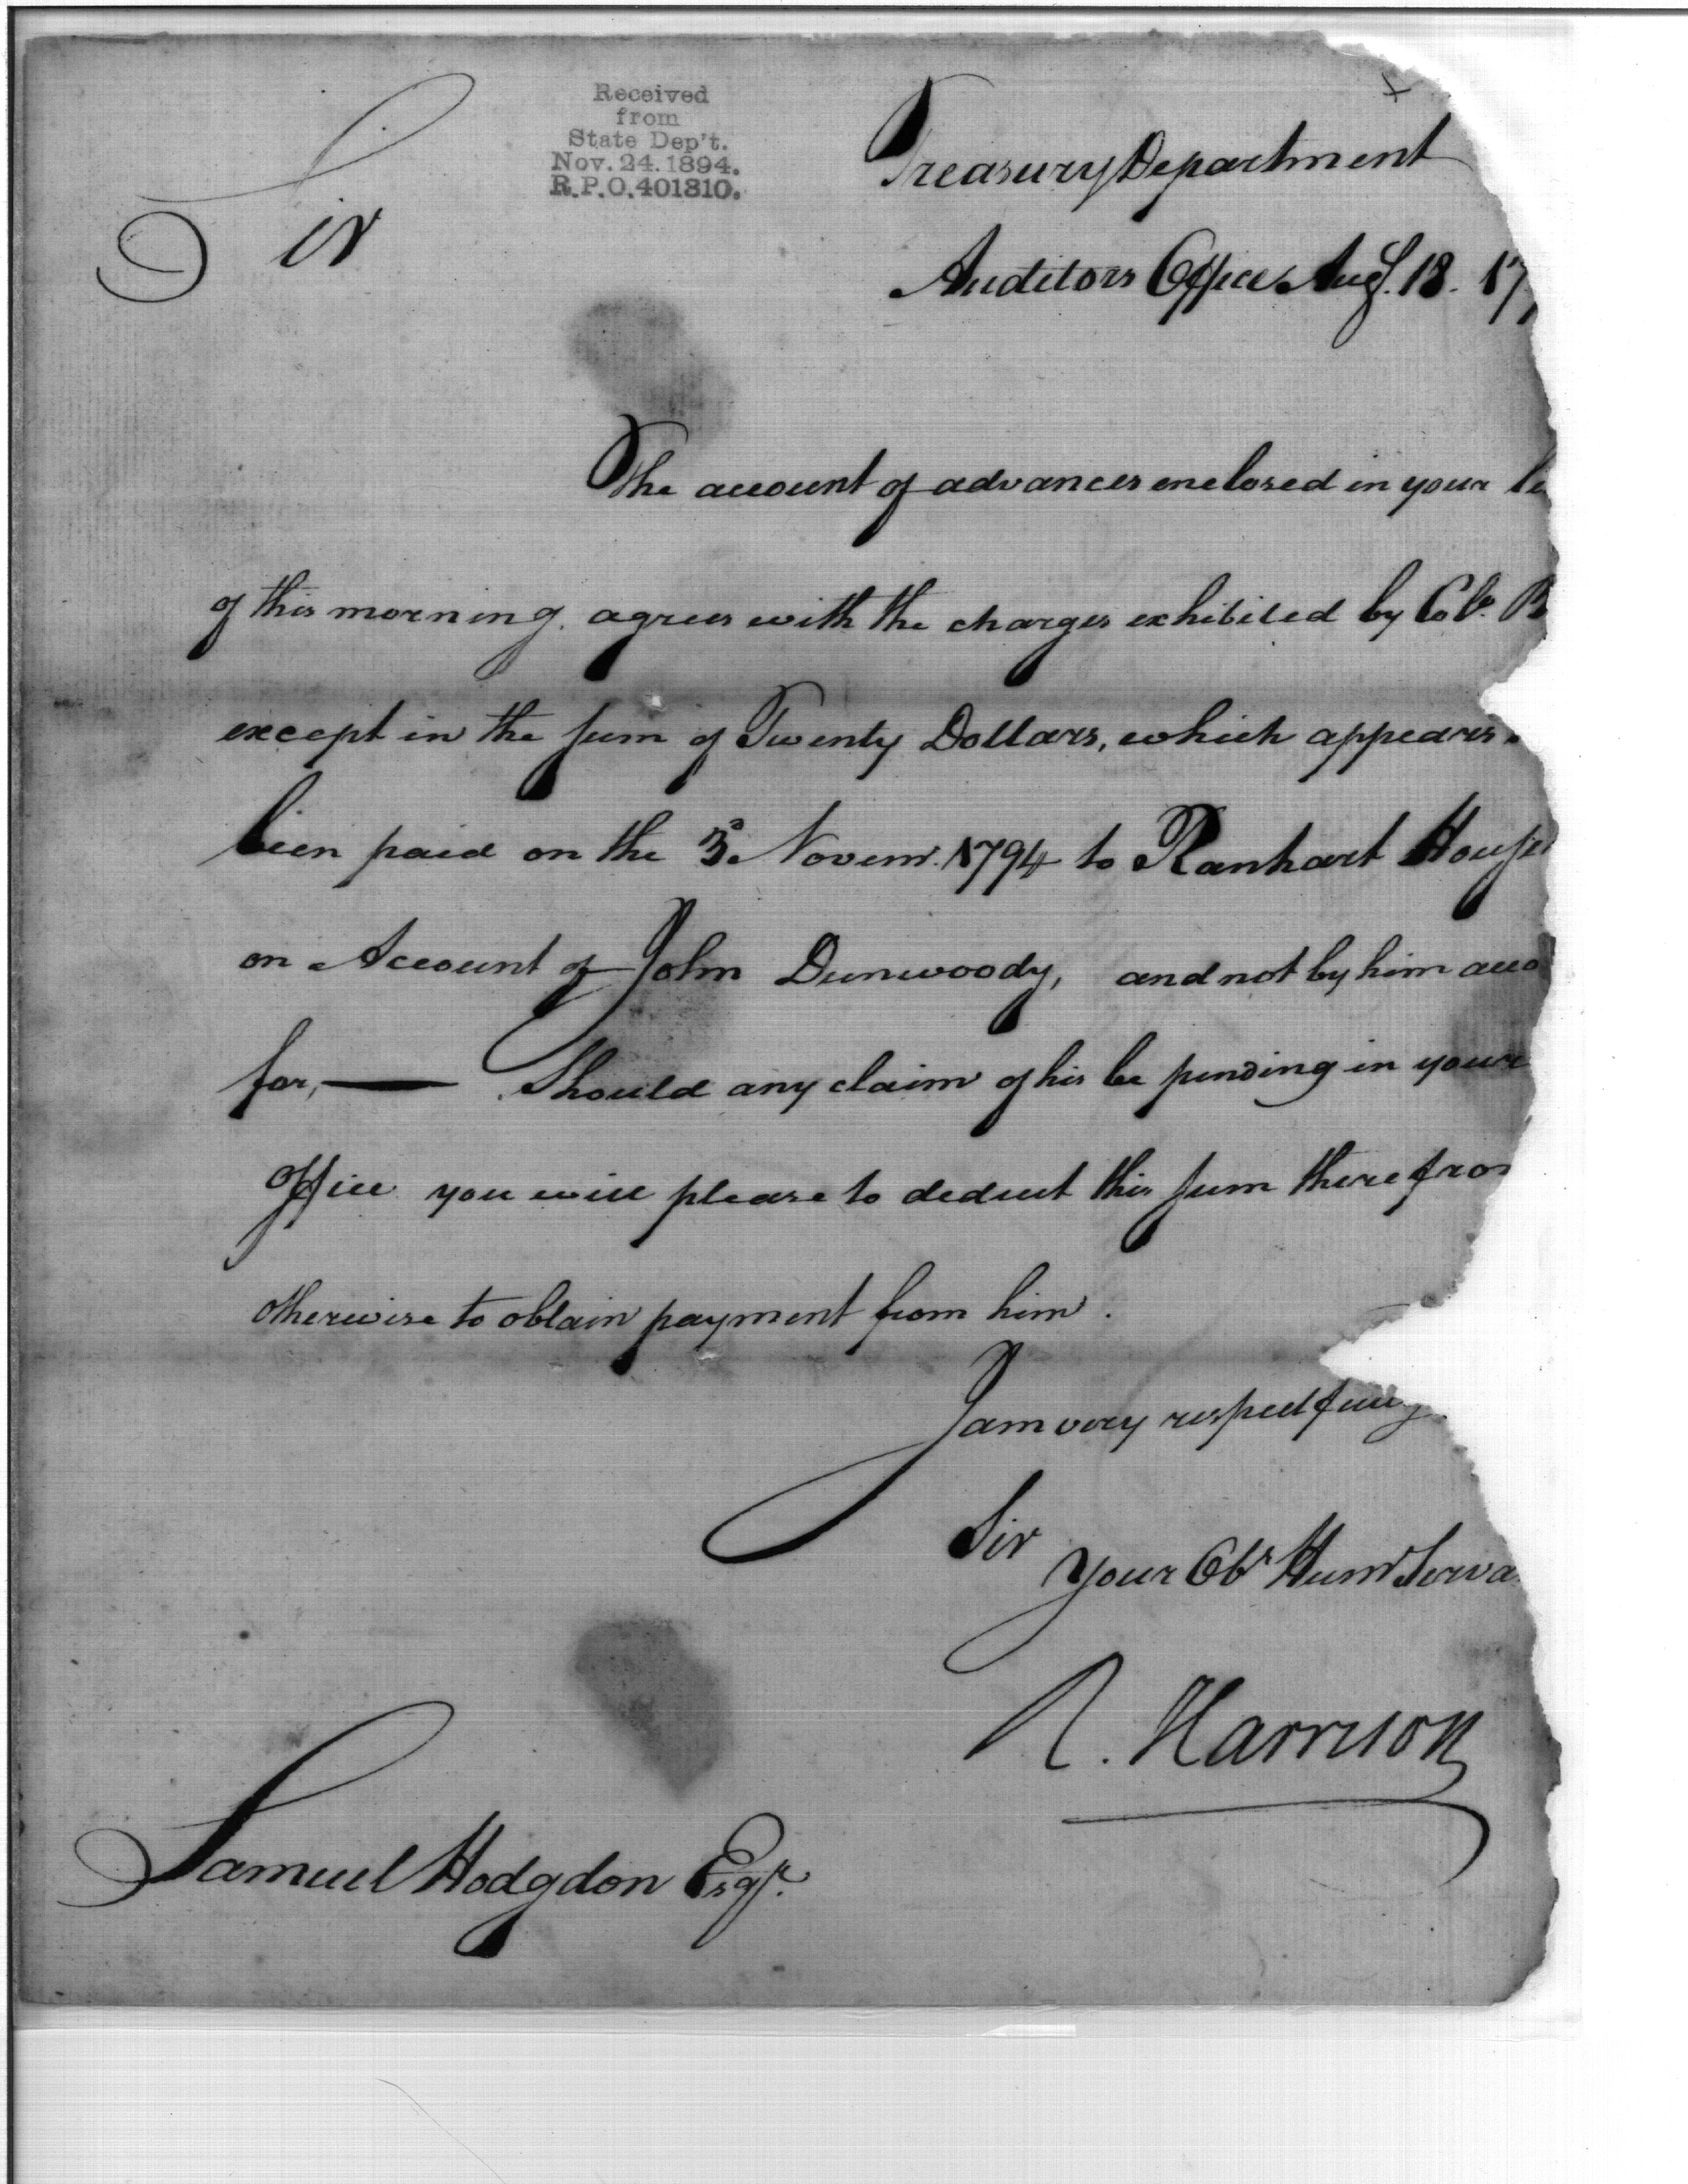 Received
from
State Dep't.
Nov. 24. 1894.
R.P.O. 401310.
Treasury Department
Sir
Auditors Office Augt. 18. 17
The account of advances enclosed in your le
of this morning. agrees with the charges exhibited by Colo. B
except in the sum of Twenty Dollars, which appears
been paid on the 3d Novemr. 1794 to Ranhart House
on Account of John Dunwoody, and not by him acco
for, — Should any claim of his be pending in your
Office you will please to deduct this sum therefrom
otherwise to obtain payment from him.
I am very respectfully
Sir
Your Obt Humr Serva
R. Harrison
Samuel Hodgdon Esqr.